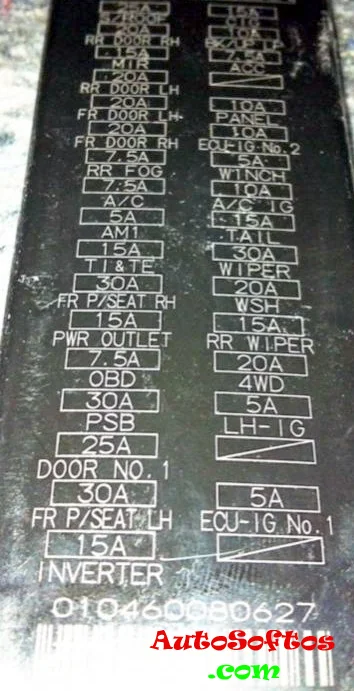 25A
S/ROOF
20A
RR DOOR RH
15A
MIR
20A
RR DOOR LH
20A
FR DOOR LH
20A
FR DOOR RH
7.5A
RR FOG
7.5A
A/C
5A
AM1
15A
TI&TE
30A
FR P/SEAT RH
15A
PWR OUTLET
7.5A
OBD
30A
PSB
25A
DOOR NO.1
30A
FR P/SEAT LH
15A
INVERTER
15A
CIG
10A
BK/UP LP
7.5A
ACC
10A
PANEL
10A
ECU-IG No.2
5A
WINCH
10A
A/C IG
15A
TAIL
30A
WIPER
20A
WSH
15A
RR WIPER
20A
4WD
5A
LH-IG
5A
ECU-IG No.1
010460080627
AutoSoftos
.com